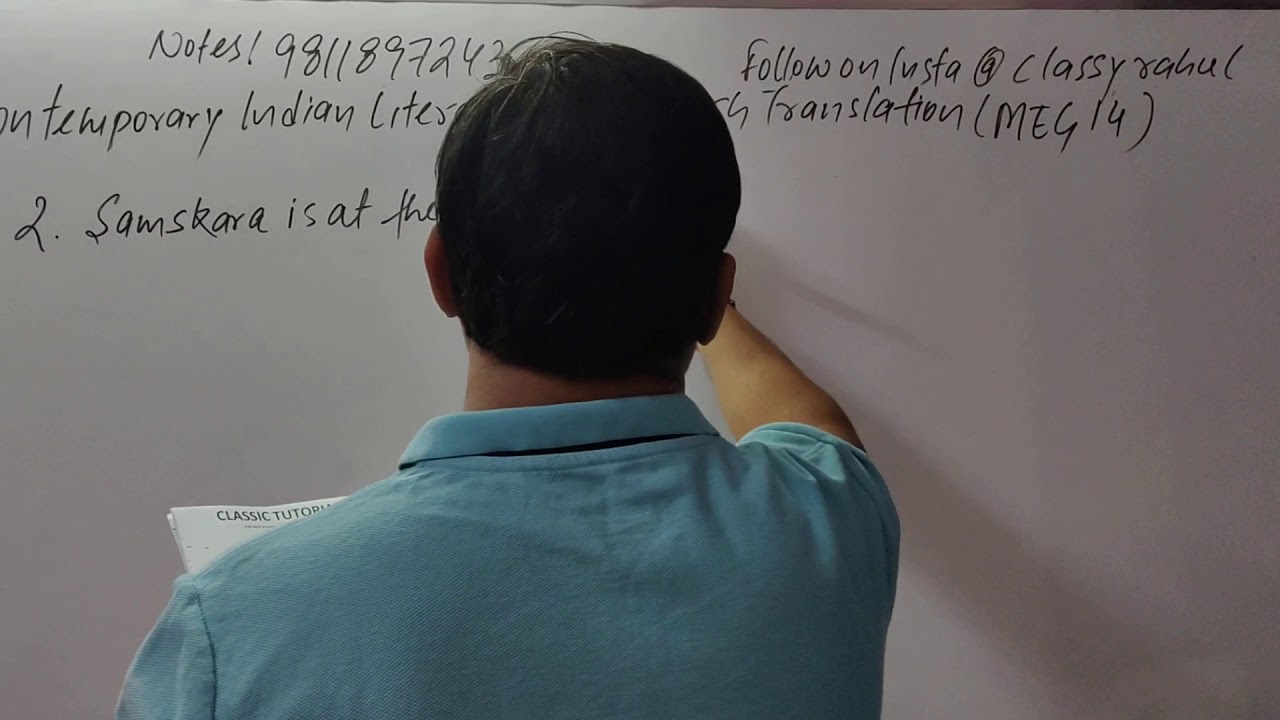 Notes! 981189724
Follow on Insta @ classyrahul
ontemporary Indian Liter Translation (MEG 14)
2. Samskara is at the
CLASSIC TUTORI